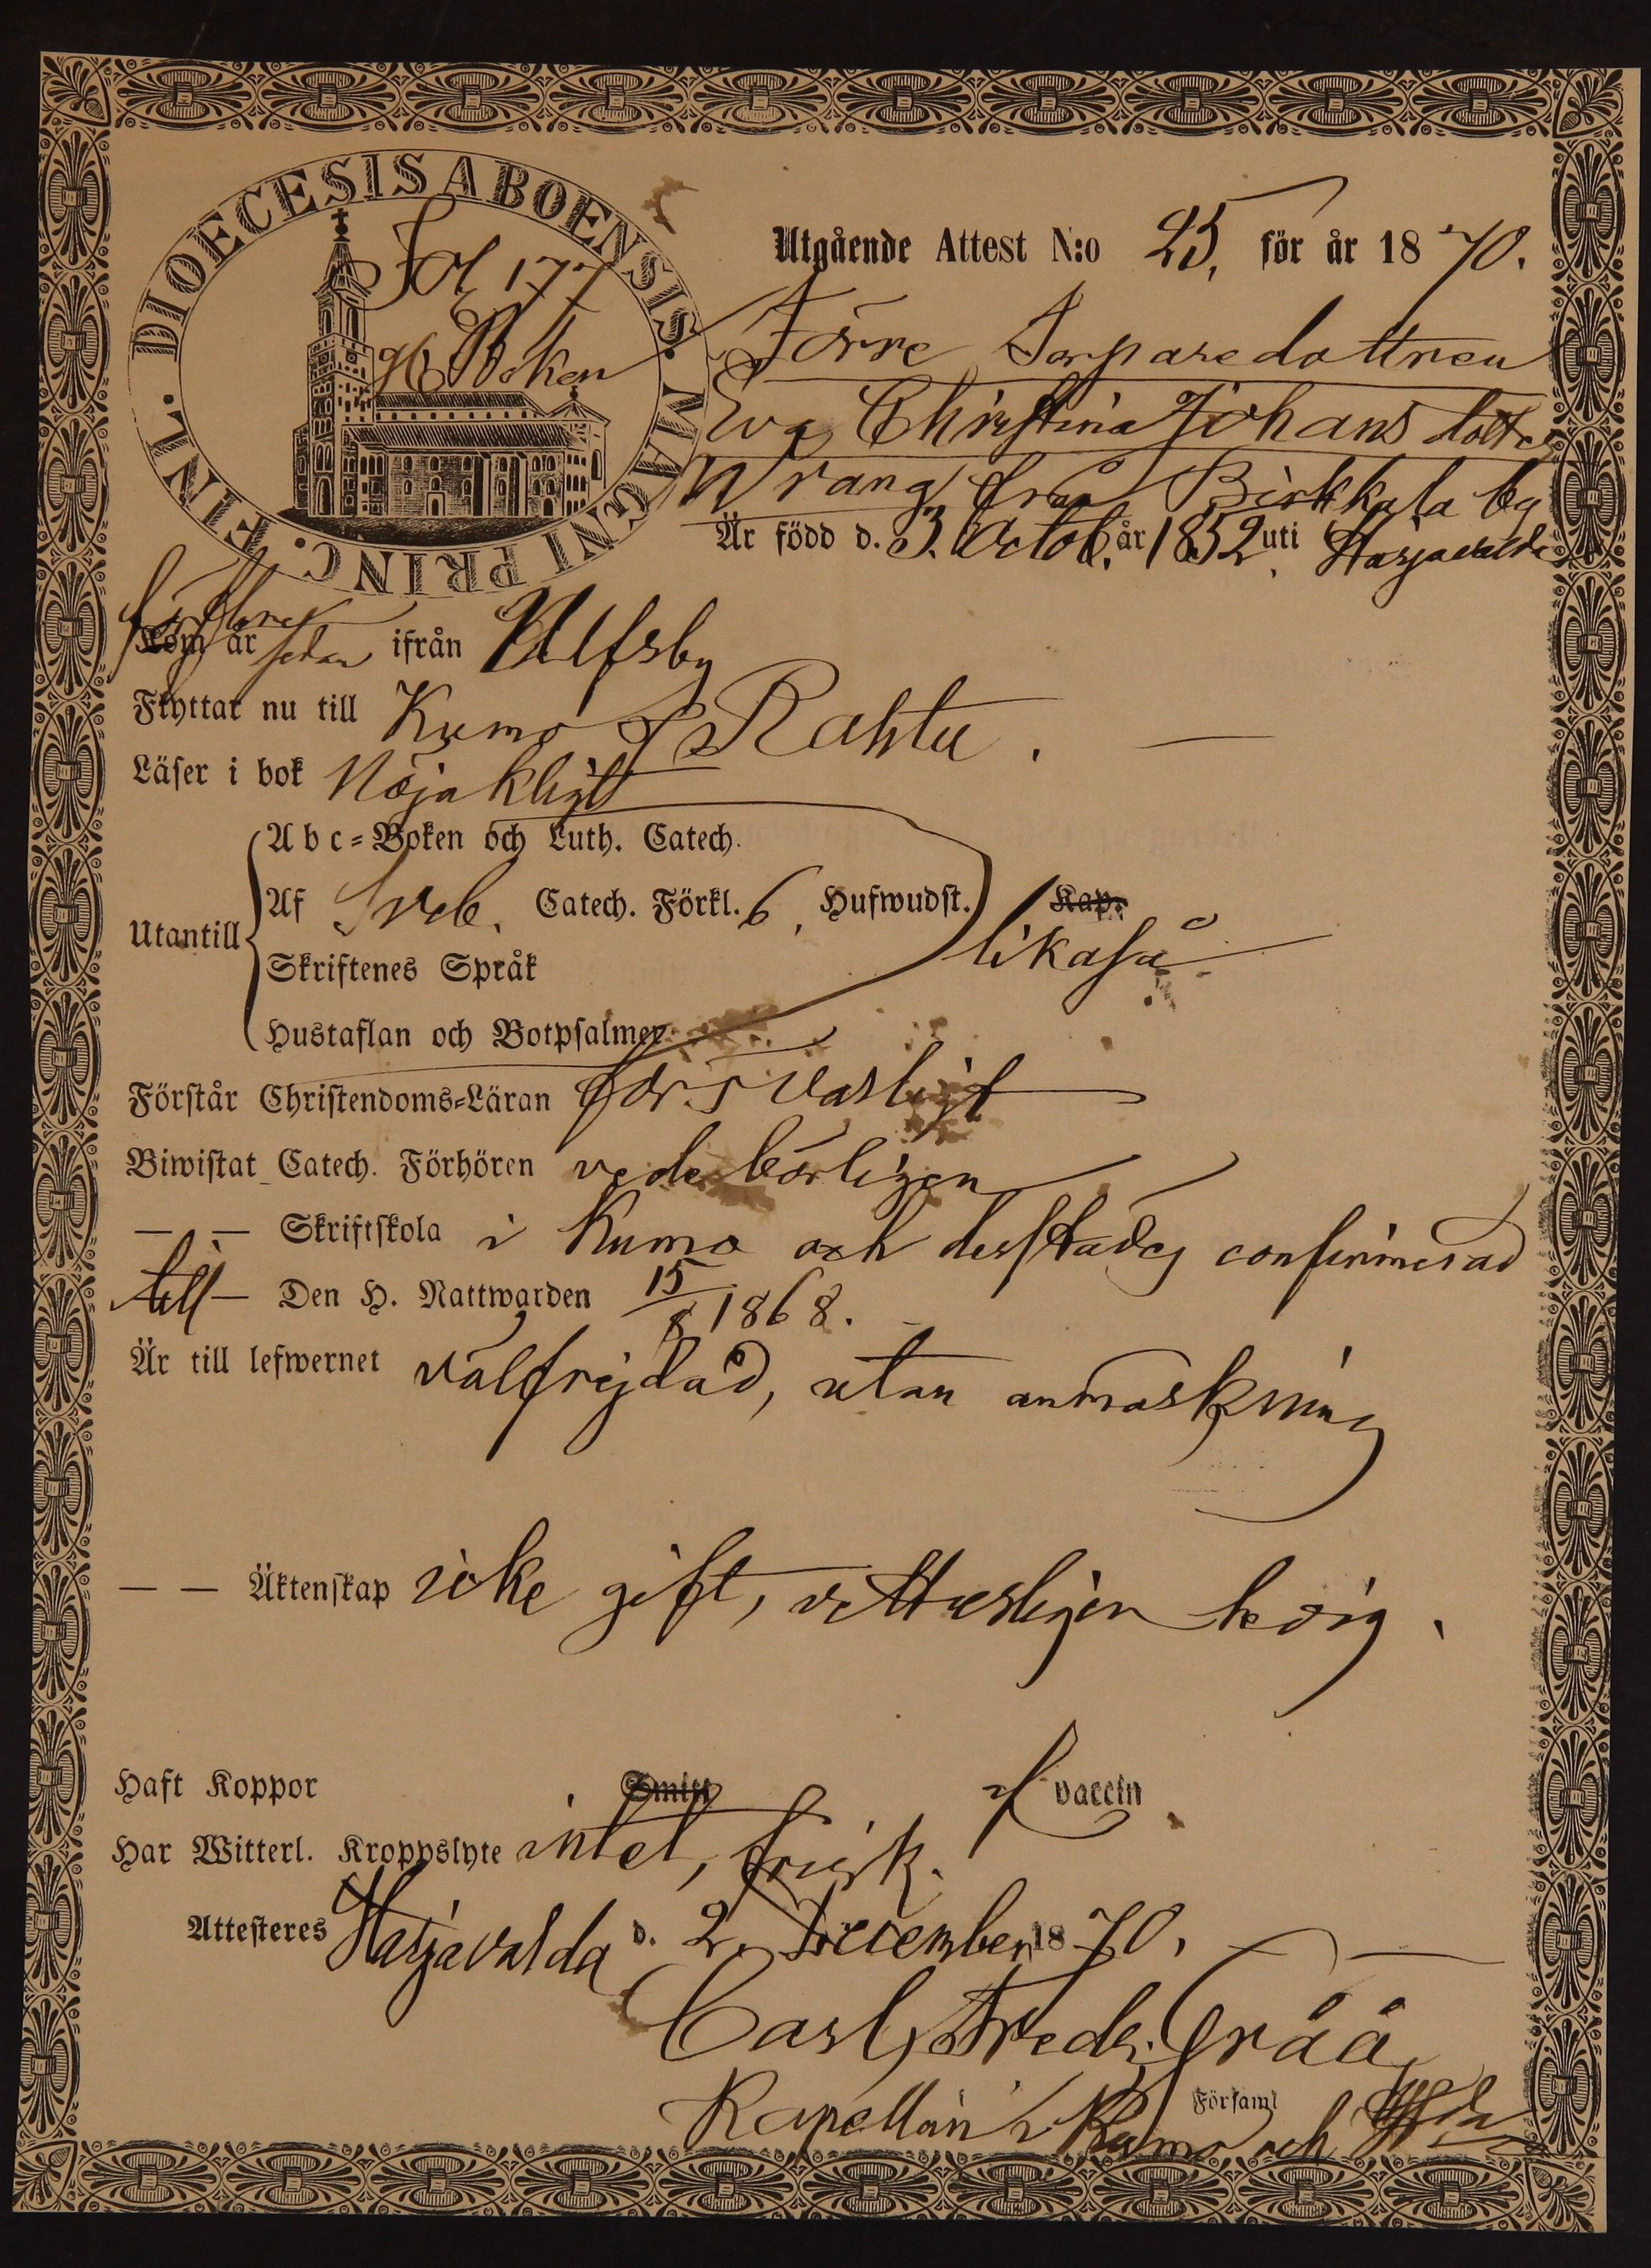 DIOECESIS ABOENSIS. MAGNI PRINC. FINL.
Fol 177
Boken
Utgående Attest N:o 25, för år 1870.
Förre Torparedottren
Eva Christina Johansdotter
Wrang från Birkkala by
Är född d. 3. Octob. år 1852 uti Harjavalda
Kom år sedan ifrån Ulfsby
Flyttar nu till Kumo Rahtu.
Läser i bok Nöjaktligt
Utantill
A b c-Boken och Luth. Catech.
Af Sveb. Catech. Förkl. 6, Hufwudst. Kap.
likaså
Skriftenes Språk
Hustaflan och Botpsalmer
Förstår Christendoms-Läran försvarligt
Biwistat Catech. Förhören vederbörligen
— — Skriftskola i Kumo och derstädes confirmerad
till — Den H. Nattwarden 15/8 1868.
Är till lefwernet välfrejdad, utan anmärkning
— — Äktenskap icke gift, vetterligen ledig.
Haft Koppor Smitt af vaccin
Har Witterl. Kroppslyte intet, frisk.
Attesteres Harjavalda d. 2. December 1870.
Carl Fredr. Grää
Kapellan i Kumo Församl och